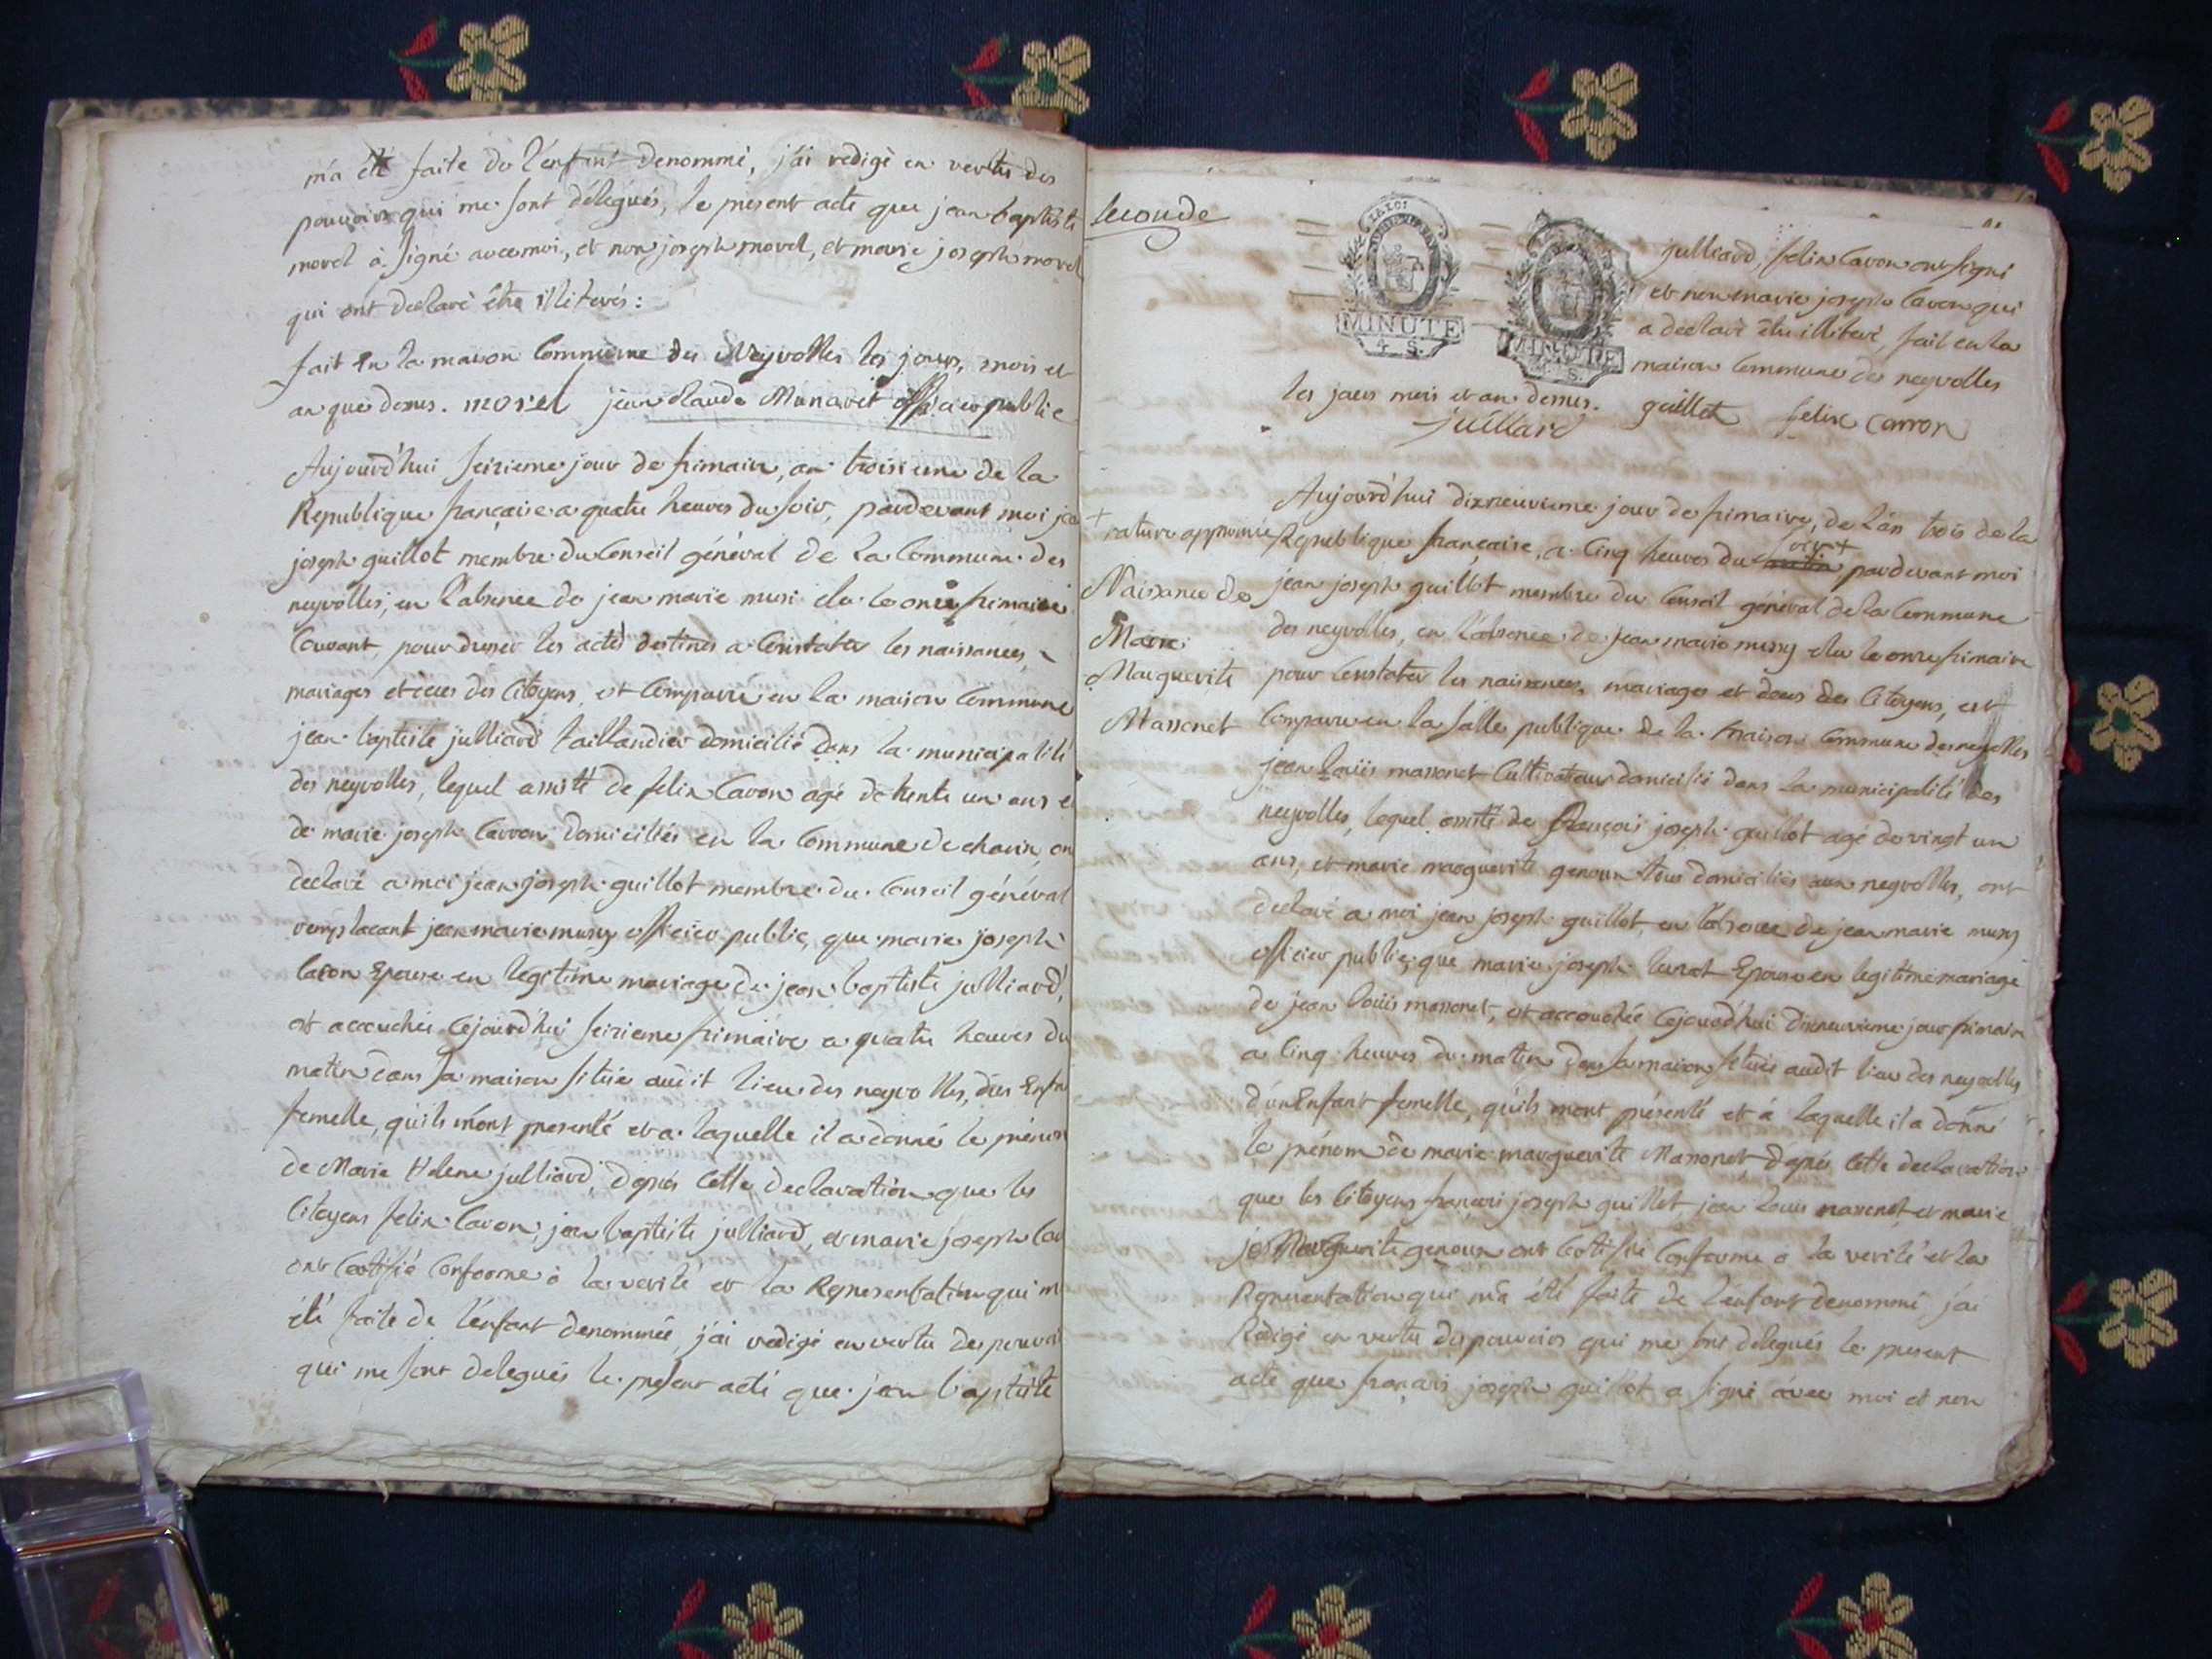 m'a été faite de l'enfant denommé, j'ai redigé en vertu des
pouvoirs qui me sont délegués, le present acte que jean baptiste
morel à signé avec moi, et non joseph morel, et marie joseph morel
qui ont declaré être illiterés :
fait en la maison Commune des Neyrolles les jours, mois et
an que denus. morel jean claude Munaret officier public
Aujourd'hui seizieme jour de frimaire, an troisieme de la
Republique française a quatre heures du soir, pardevant moi jean
joseph guillot membre du Conseil général de la Commune des
neyrolles, en l'absence de jean marie musi elu le onze frimaire
Courant, pour dresser les actes destinés a Constater les naissances,
mariages et deces des Citoyens, est Comparu en la maison Commune
jean baptiste julliard taillandier domicilié dans la municipalité
des neyrolles, lequel assisté de felix Caron agé de trente un ans et
de marie joseph Carron domiciliés en la Commune de charix, on
declaré a moi jean joseph guillot membre du Conseil général
remplacant jean marie musy officier public, que marie joseph
Caron Epouse en legitime mariage de jean baptiste julliard,
est accouchée cejourd'hui seizieme frimaire a quatre heures du
matin dans sa maison située audit lieu des neyrolles, d'un Enfa
femelle, qu'ils m'ont presenté et a laquelle il a donné le prénom
de Marie Helene julliard, d'après cette declaration que les
Citoyens felix Caron, jean baptiste julliard, et marie joseph Car
ont Certifié Conforme à la verité et la Representation qui m
été faite de l'enfant denommée, j'ai redigé en vertu des pouvoi
qui me sont delegués le present acte que jean baptiste
seconde
LA LOI
MINUTE
4. S.
MINUTE
4. S.
julliard, felix Caron ont signé
et non marie joseph Caron qui
a declaré être illiteré, fait en la
maison Commune des neyrolles
les jours mois et an denus. guillot felix carron
juillard
Aujourd'hui dixneuvieme jour de frimaire, de l'an trois de la
+ rature approuvée
Republique française, a Cinq heures du soir + pardevant moi
Naissance de
Marie
Marguerite
Massonet
jean joseph guillot membre du Conseil général de la Commune
des neyrolles, en l'absence de jean marie musy elu le onze frimaire
pour Constater les naissances, mariages et deces des Citoyens, est
Comparu en la salle publique de la maison Commune des neyrolles
jean Louis massonet Cultivateur domicilié dans la municipalité des
neyrolles, lequel assisté de françois joseph guillot agé de vingt un
ans, et marie marguerite genoux tous domiciliés aux neyrolles, ont
declaré a moi jean joseph guillot, en l'absence de jean marie musy
officier public, que marie joseph Epouse en legitime mariage
de jean Louis massonet, est accouchée cejourd'hui dixneuvieme jour frimaire
a Cinq heures du matin dans sa maison située audit lieu des neyrolles
d'un Enfant femelle, qu'ils m'ont présenté et à laquelle il a donné
le prénom de marie marguerite Massonet d'après cette declaration
que les Citoyens françois joseph guillot jean Louis massonet et marie
Marguerite genoux ont Certifié Conforme a la verité et la
Representation qui m'a été faite de l'enfant denommé j'ai
Redigé en vertu des pouvoirs qui me sont delegués le present
acte que françois joseph guillot a signé avec moi et non